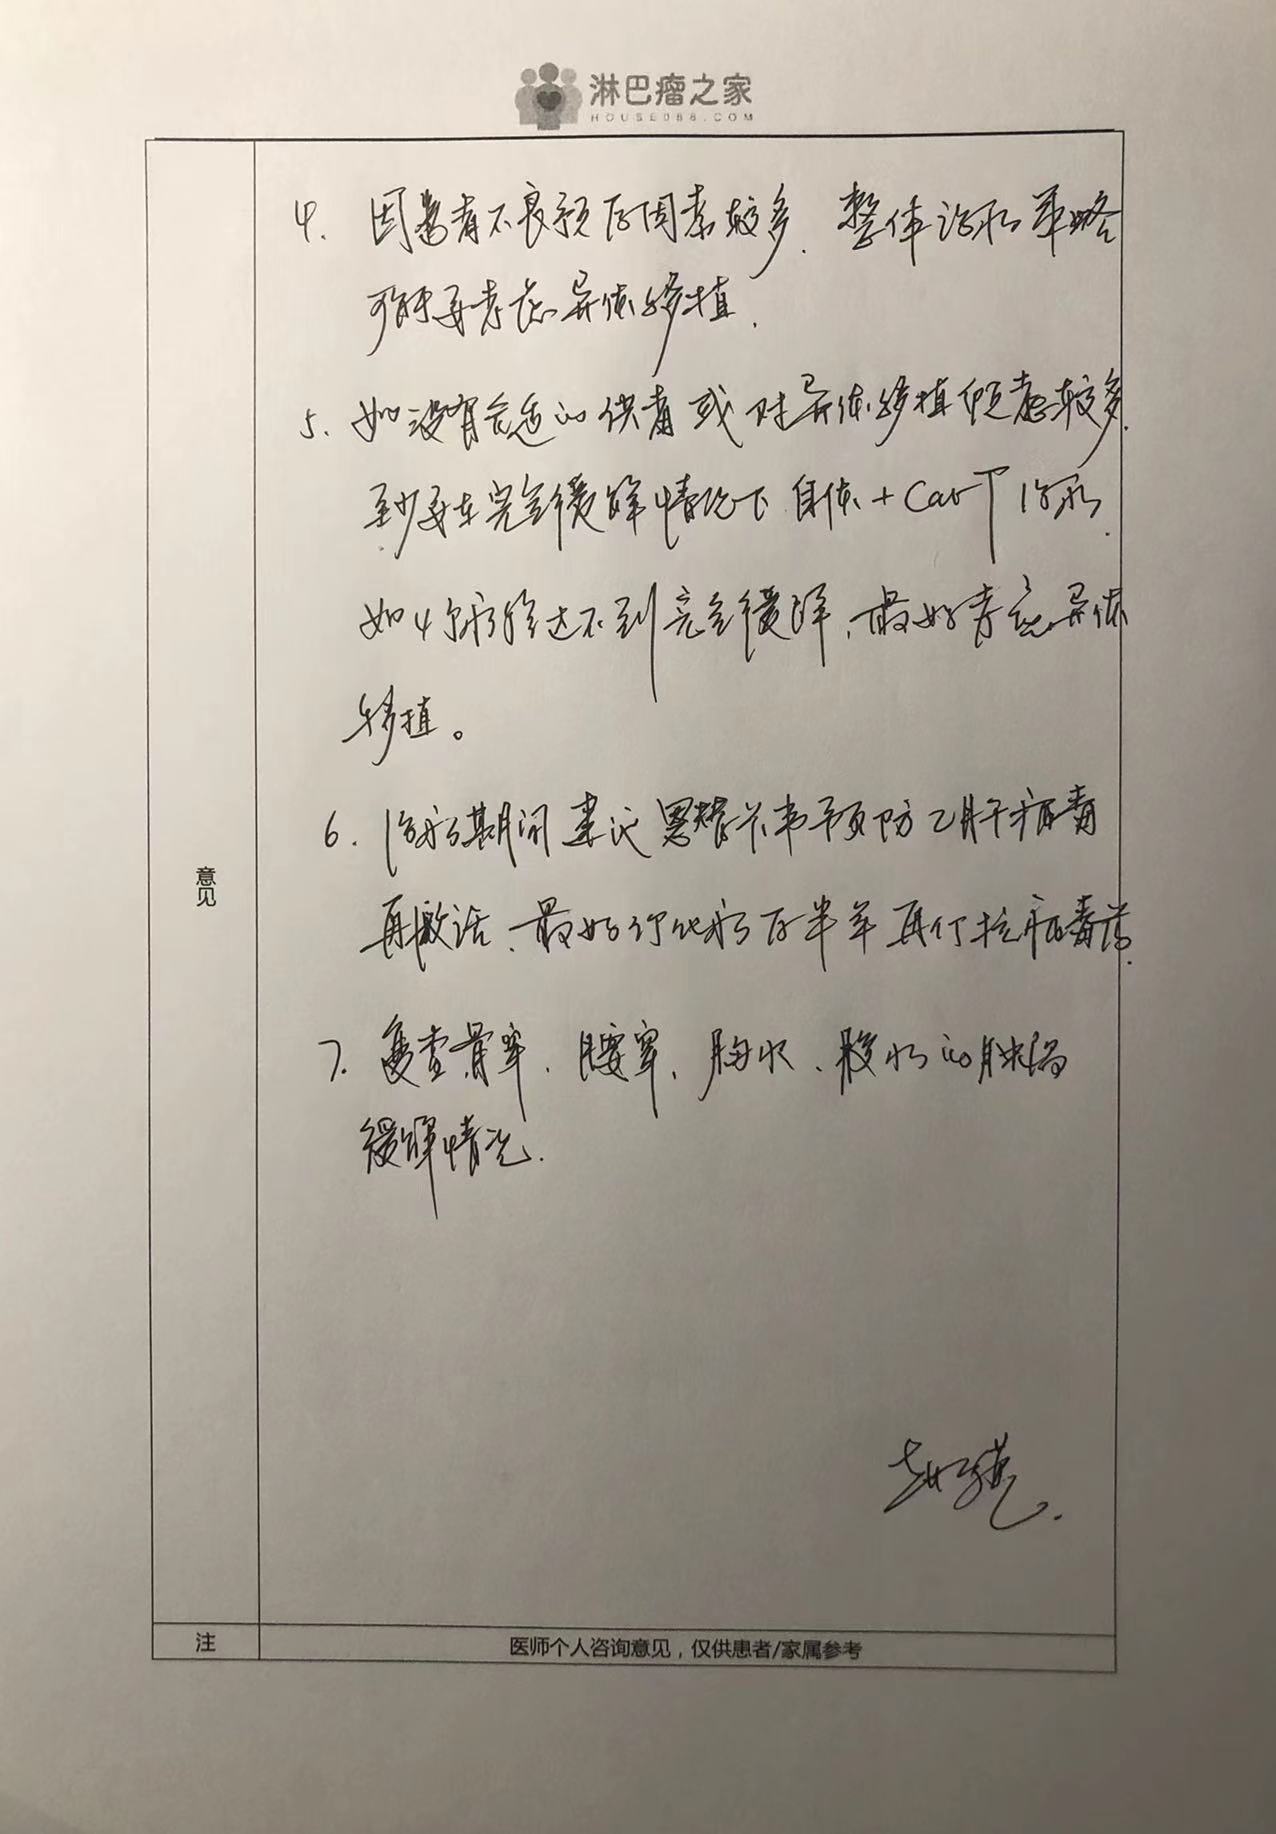 淋巴瘤之家
HOUSE086.COM
4. 因患者不良预后因素较多, 整体治疗策略
可能要考虑异体移植.
5. 如没有合适的供者或对异体移植顾虑较多,
至少要在完全缓解情况下自体+Car-T治疗.
如4个疗程达不到完全缓解, 最好考虑异体
移植。
6. 治疗期间建议恩替卡韦预防乙肝病毒
再激活、最好停化疗后半年再停抗病毒药.
7. 复查骨穿、腰穿、胸水、腹水的肿瘤
缓解情况.
意见
注
医师个人咨询意见，仅供患者/家属参考